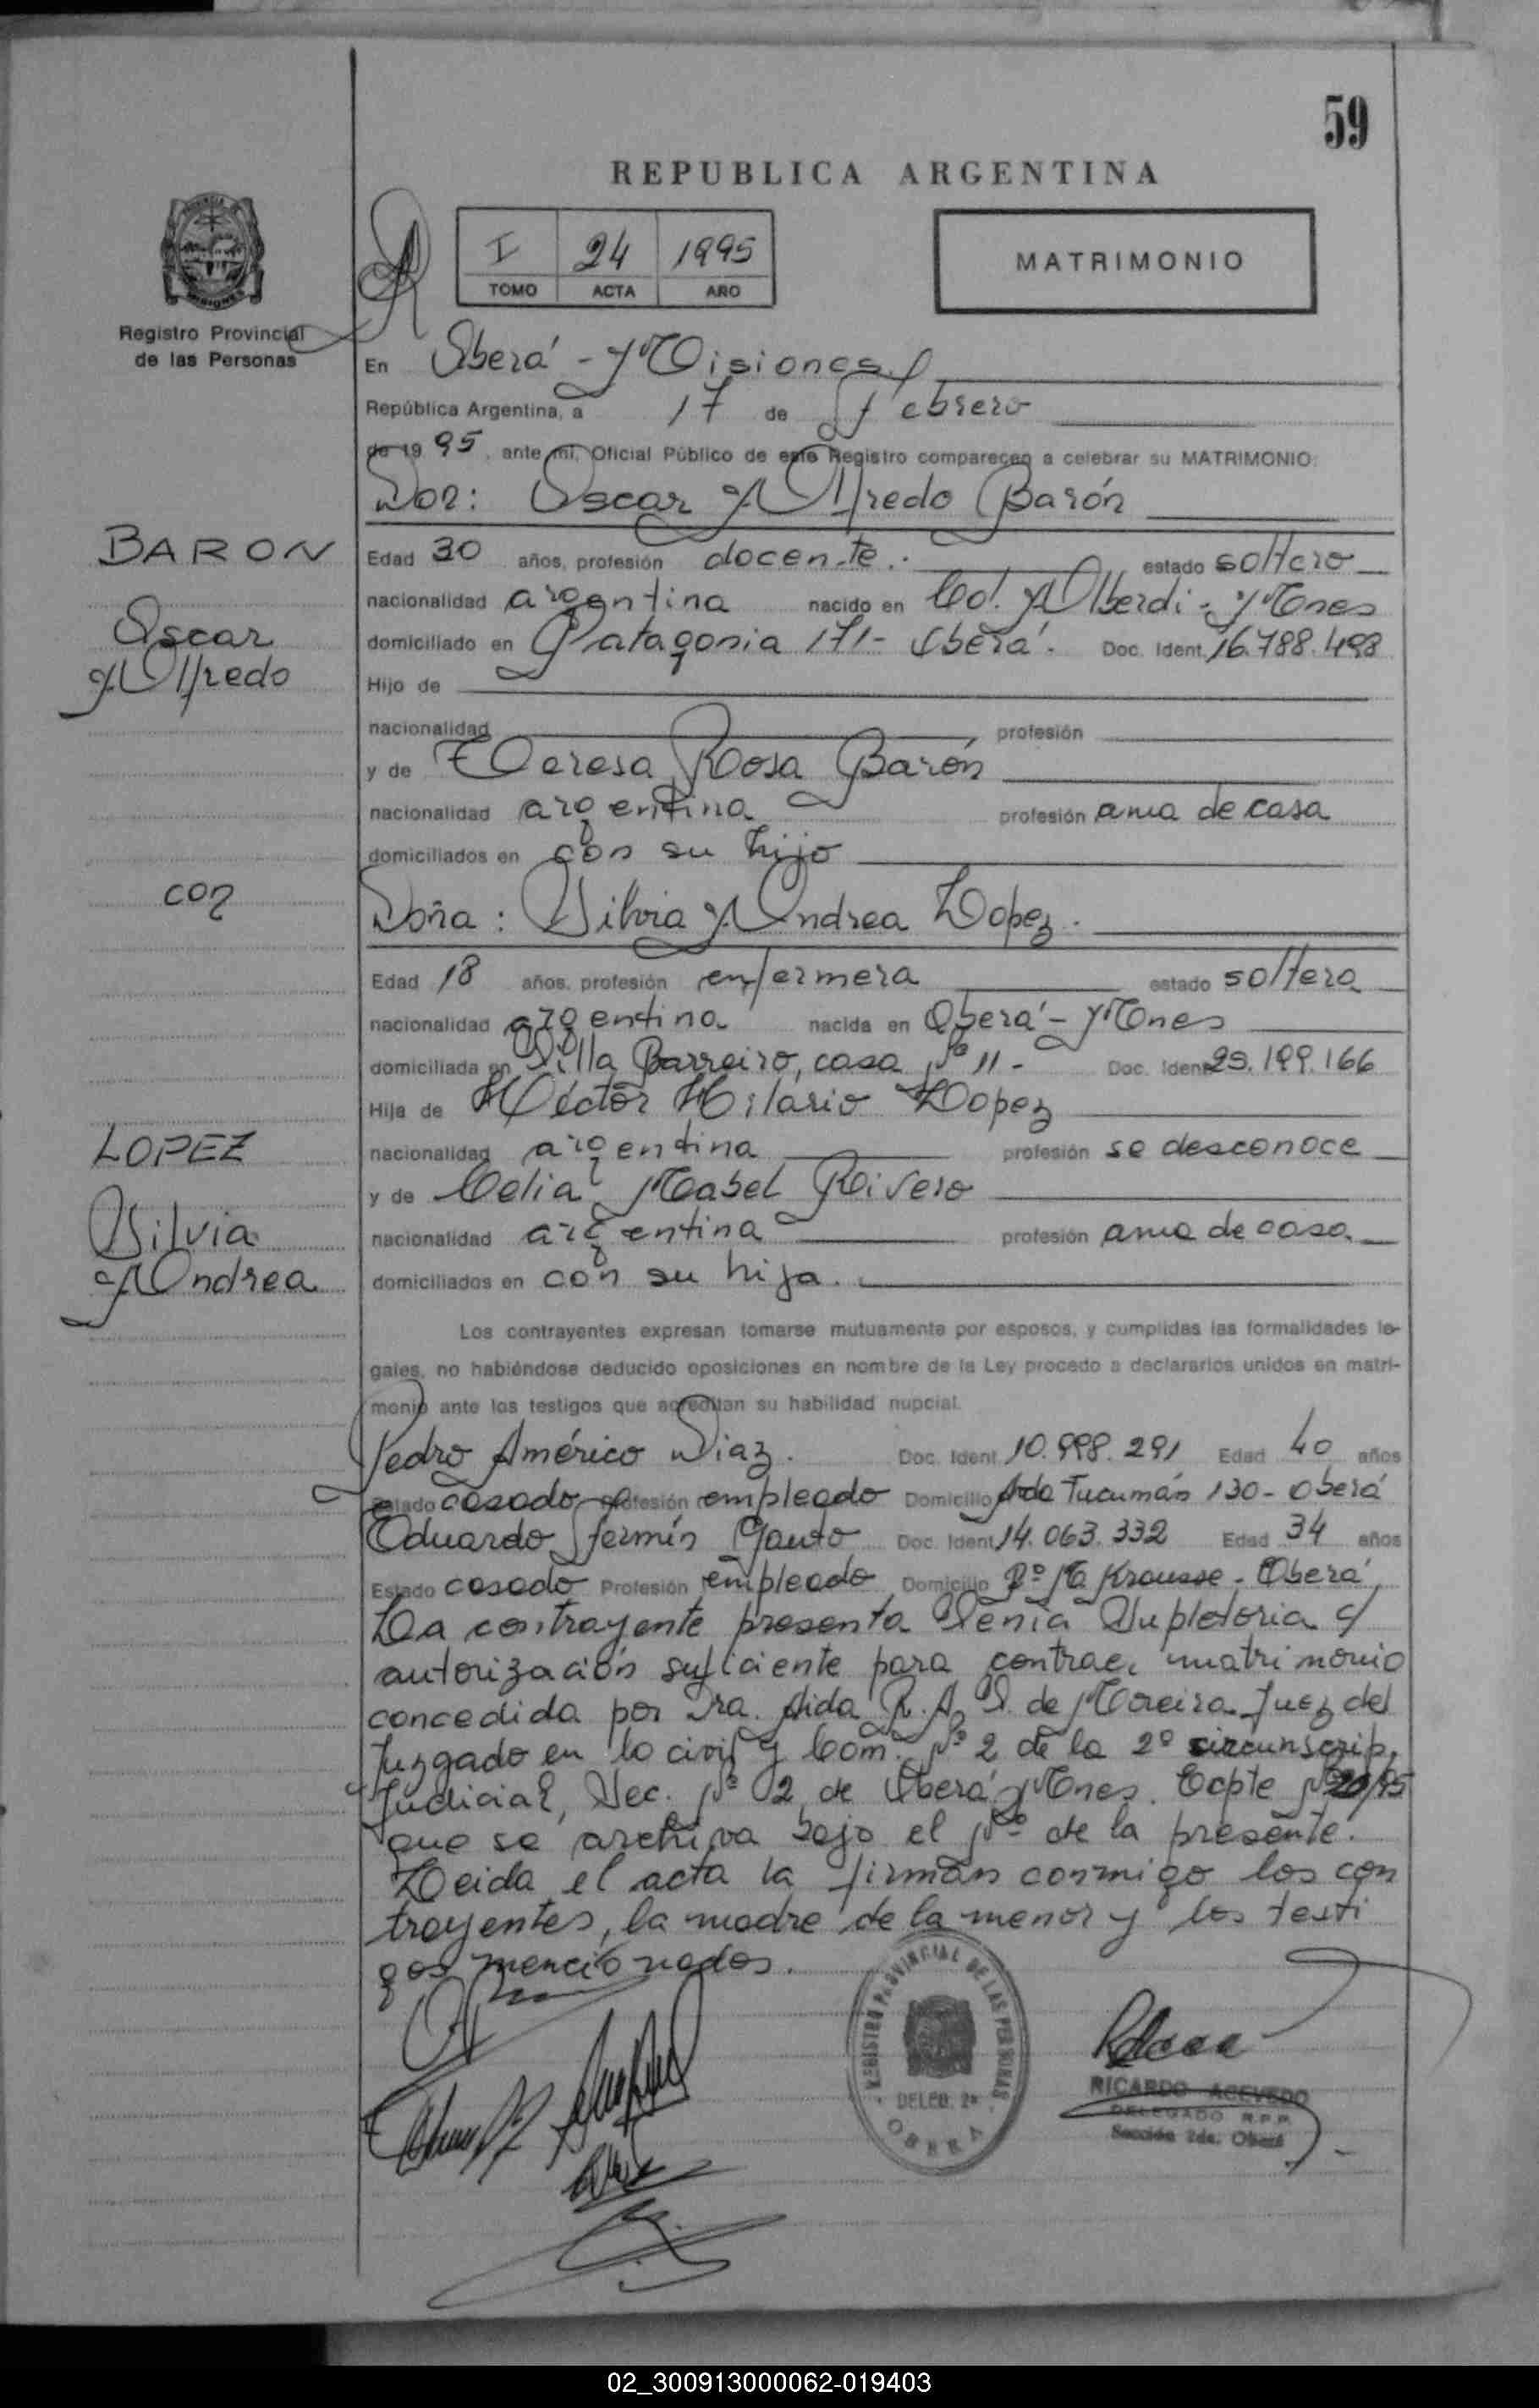 59
REPUBLICA ARGENTINA
I 24 1995
TOMO ACTA AÑO
MATRIMONIO
Registro Provincial
de las Personas
En Oberá - Misiones
República Argentina, a 17 de Febrero
de 1995, ante mí, Oficial Público de este Registro comparecen a celebrar su MATRIMONIO:
Don: Oscar Alfredo Barón
BARON
Oscar
Alfredo
Edad 30 años, profesión docente.- estado soltero
nacionalidad argentina nacido en Col. Alberdi - Mnes
domiciliado en Patagonia 171- Oberá. Doc. Ident. 16.788.498
Hijo de
nacionalidad profesión
y de Teresa Rosa Barón
nacionalidad argentina profesión ama de casa
domiciliados en con su hijo
con
Doña: Silvia Andrea Lopez.
Edad 18 años, profesión enfermera estado soltera
nacionalidad argentina nacida en Oberá - Mnes
domiciliada en Villa Barreiro, casa Nº 11 - Doc. Ident. 25.199.166
Hija de Héctor Hilario Lopez
LOPEZ
Silvia
Andrea
nacionalidad argentina profesión se desconoce
y de Celia Mabel Rivero
nacionalidad argentina profesión ama de casa.
domiciliados en con su hija.
Los contrayentes expresan tomarse mutuamente por esposos, y cumplidas las formalidades le-
gales, no habiéndose deducido oposiciones en nombre de la Ley procedo a declararlos unidos en matri-
monio ante los testigos que acreditan su habilidad nupcial.
Pedro Américo Diaz. Doc. Ident. 10.998.291 Edad 40 años
Estado casado Profesión empleado Domicilio Avda Tucumán 130 - Oberá
Eduardo Fermín Gauto Doc. Ident. 14.063.332 Edad 34 años
Estado casado Profesión empleado Domicilio Bº Krausse - Oberá
La contrayente presenta Venia Supletoria c/
autorización suficiente para contraer matrimonio
concedida por Dra. Aida R. A. de Moreira Juez del
Juzgado en lo civil y Com. Nº 2 de la 2º circunscrip.
Judicial, Sec. Nº 2 de Oberá Mnes. Ecpte Nº 20/95
que se archiva bajo el Nº de la presente.
Leida el acta la firman conmigo los con
trayentes, la madre de la menor y los testi
gos mencionados.
REGISTRO PROVINCIAL DE LAS PERSONAS
DELEG. 2ª
OBERA
RICARDO ACEVEDO
DELEGADO R.P.P.
Sección 2da. Oberá
02_300913000062-019403